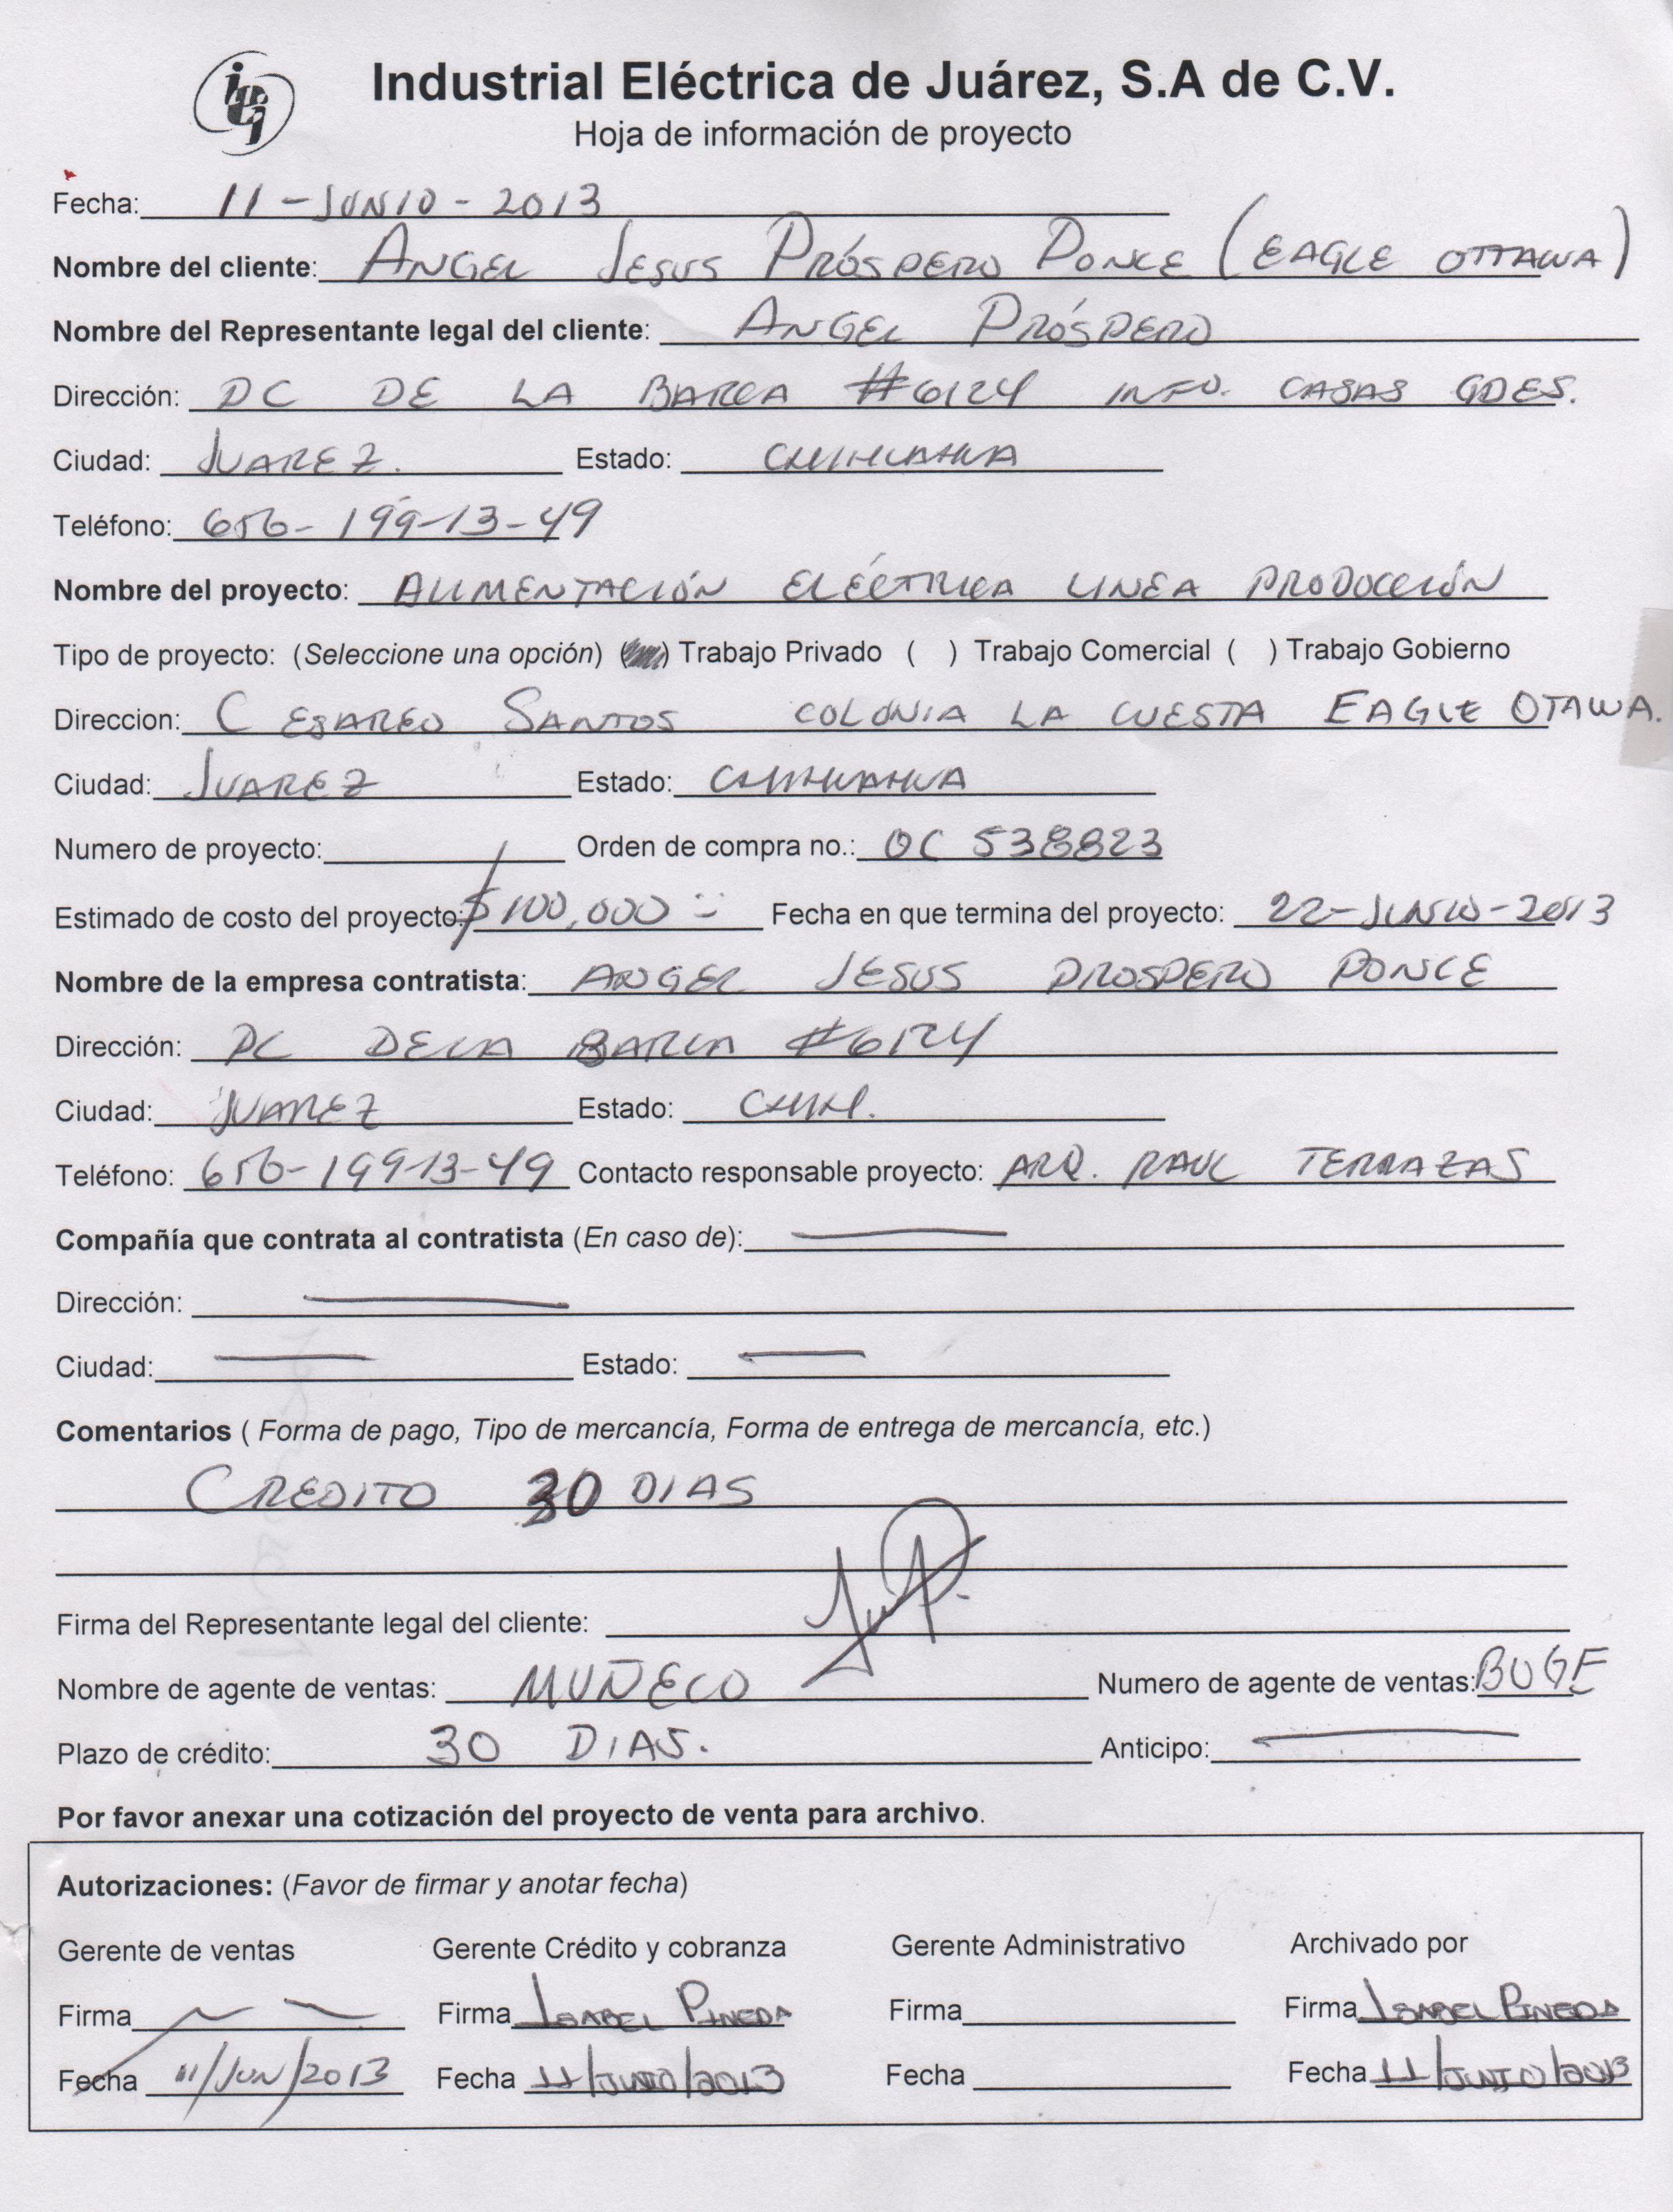 iej Industrial Eléctrica de Juárez, S.A de C.V.
Hoja de información de proyecto
Fecha: 11-JUNIO-2013
Nombre del cliente: ANGEL JESUS PRÓSPERO PONCE (EAGLE OTTAWA)
Nombre del Representante legal del cliente: ANGEL PRÓSPERO
Dirección: PC DE LA BARCA #6124 INFO. CASAS GDES.
Ciudad: JUAREZ. Estado: CHIHUAHUA
Teléfono: 656-199-13-49
Nombre del proyecto: ALIMENTACIÓN ELÉCTRICA LINEA PRODUCCIÓN
Tipo de proyecto: (Seleccione una opción) ( ) Trabajo Privado ( ) Trabajo Comercial ( ) Trabajo Gobierno
Direccion: C ESAREO SANTOS COLONIA LA CUESTA EAGLE OTAWA.
Ciudad: JUAREZ Estado: CHIHUAHUA
Numero de proyecto: Orden de compra no.: OC 538823
Estimado de costo del proyecto: $100,000 Fecha en que termina del proyecto: 22-JUNIO-2013
Nombre de la empresa contratista: ANGEL JESUS PROSPERO PONCE
Dirección: PC DE LA BARCA #6124
Ciudad: JUAREZ Estado: CHIH.
Teléfono: 656-199-13-49 Contacto responsable proyecto: ARQ. RAUL TERRAZAS
Compañía que contrata al contratista (En caso de):
Dirección:
Ciudad: Estado:
Comentarios ( Forma de pago, Tipo de mercancía, Forma de entrega de mercancía, etc.)
CREDITO 30 DIAS
Firma del Representante legal del cliente:
Nombre de agente de ventas: MUÑECO Numero de agente de ventas: BUGE
Plazo de crédito: 30 DIAS. Anticipo:
Por favor anexar una cotización del proyecto de venta para archivo.
Autorizaciones: (Favor de firmar y anotar fecha)
Gerente de ventas Gerente Crédito y cobranza Gerente Administrativo Archivado por
Firma Firma ISABEL PINEDA Firma Firma ISABEL PINEDA
Fecha 11/JUN/2013 Fecha 11/JUNIO/2013 Fecha Fecha 11/JUNIO/2013